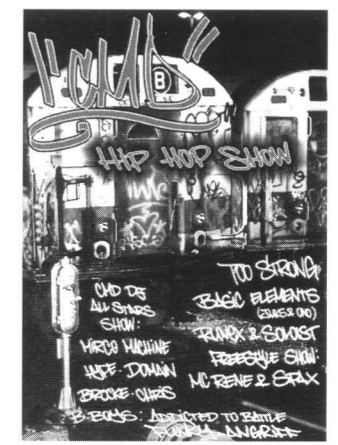 "CMD"
B
HIP HOP SHOW
CMD DJ
ALL STARS
SHOW:
MIRCO MACHINE
HYPE · DOMAIN
BROOKE · CHRIS
TOO STRONG
BASIC ELEMENTS
RUMEX & SOLOIST
FREESTYLE SHOW:
MC RENE & SPAX
B-BOYS: ADDICTED TO BATTLE
FUNKY ANGRIFF